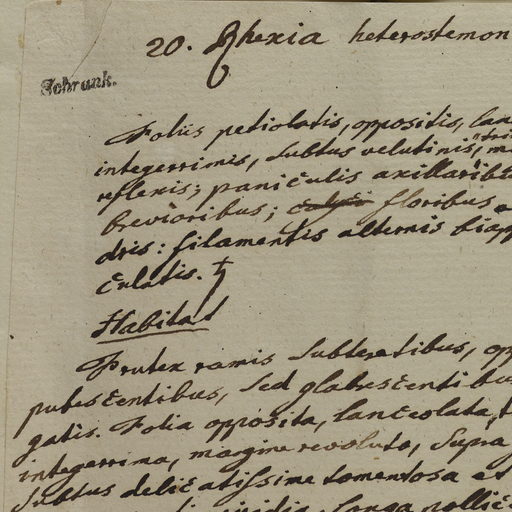 20. Rhexia heterostemon
Schrank.
Foliis petiolatis, oppositis, lan
integerrimis, subtus velutinis, tri
reflexis; paniculis axillaribu
brevioribus; floribus
dris: filamentis alternis biap
culatis. ♄
Habitat
Frutex ramis subteretibus, op
pubescentibus, sed glabrescentibu
gatis. Folia opposita, lanceolata,
integerrima, margine revoluto, supra
subtus delicatissime tomentosa et
longa pollic